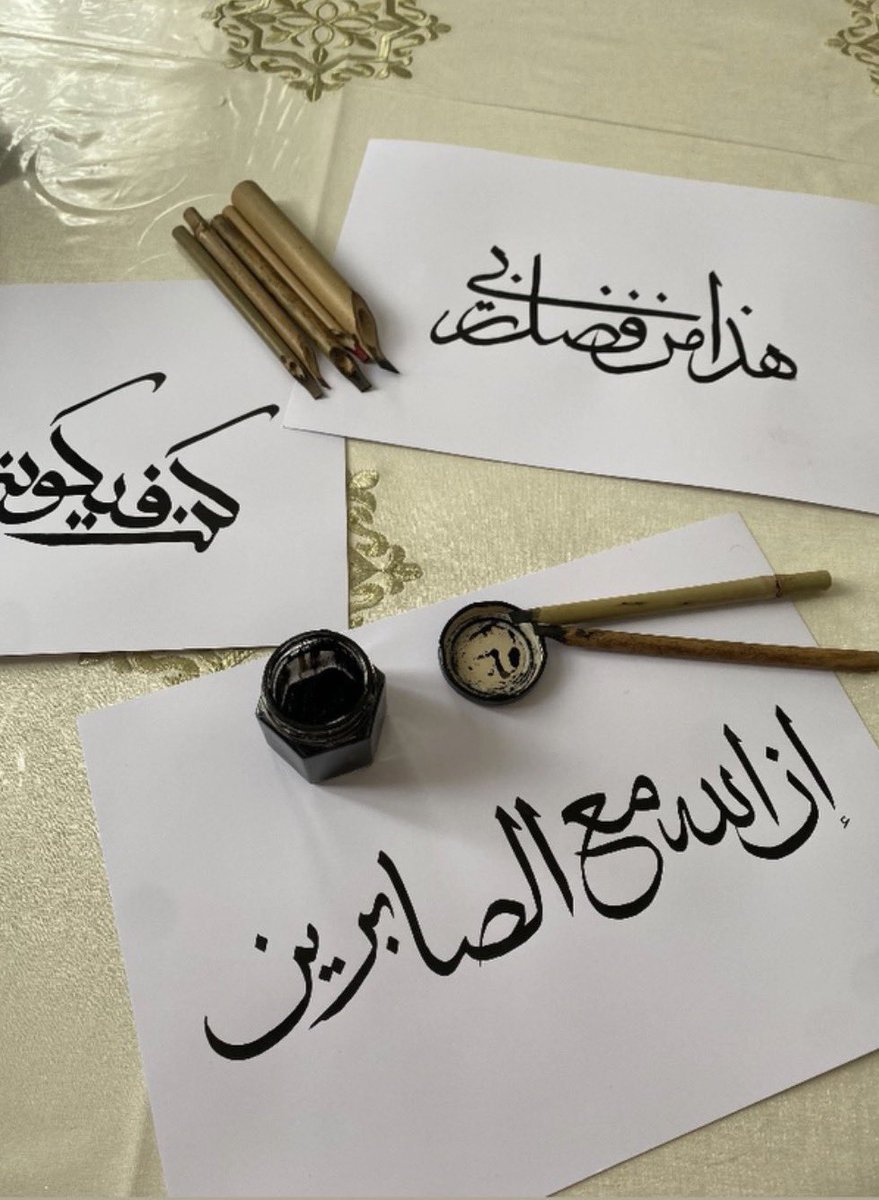 هذا من فضل ربي
كن فيكون
إن الله مع الصابرين